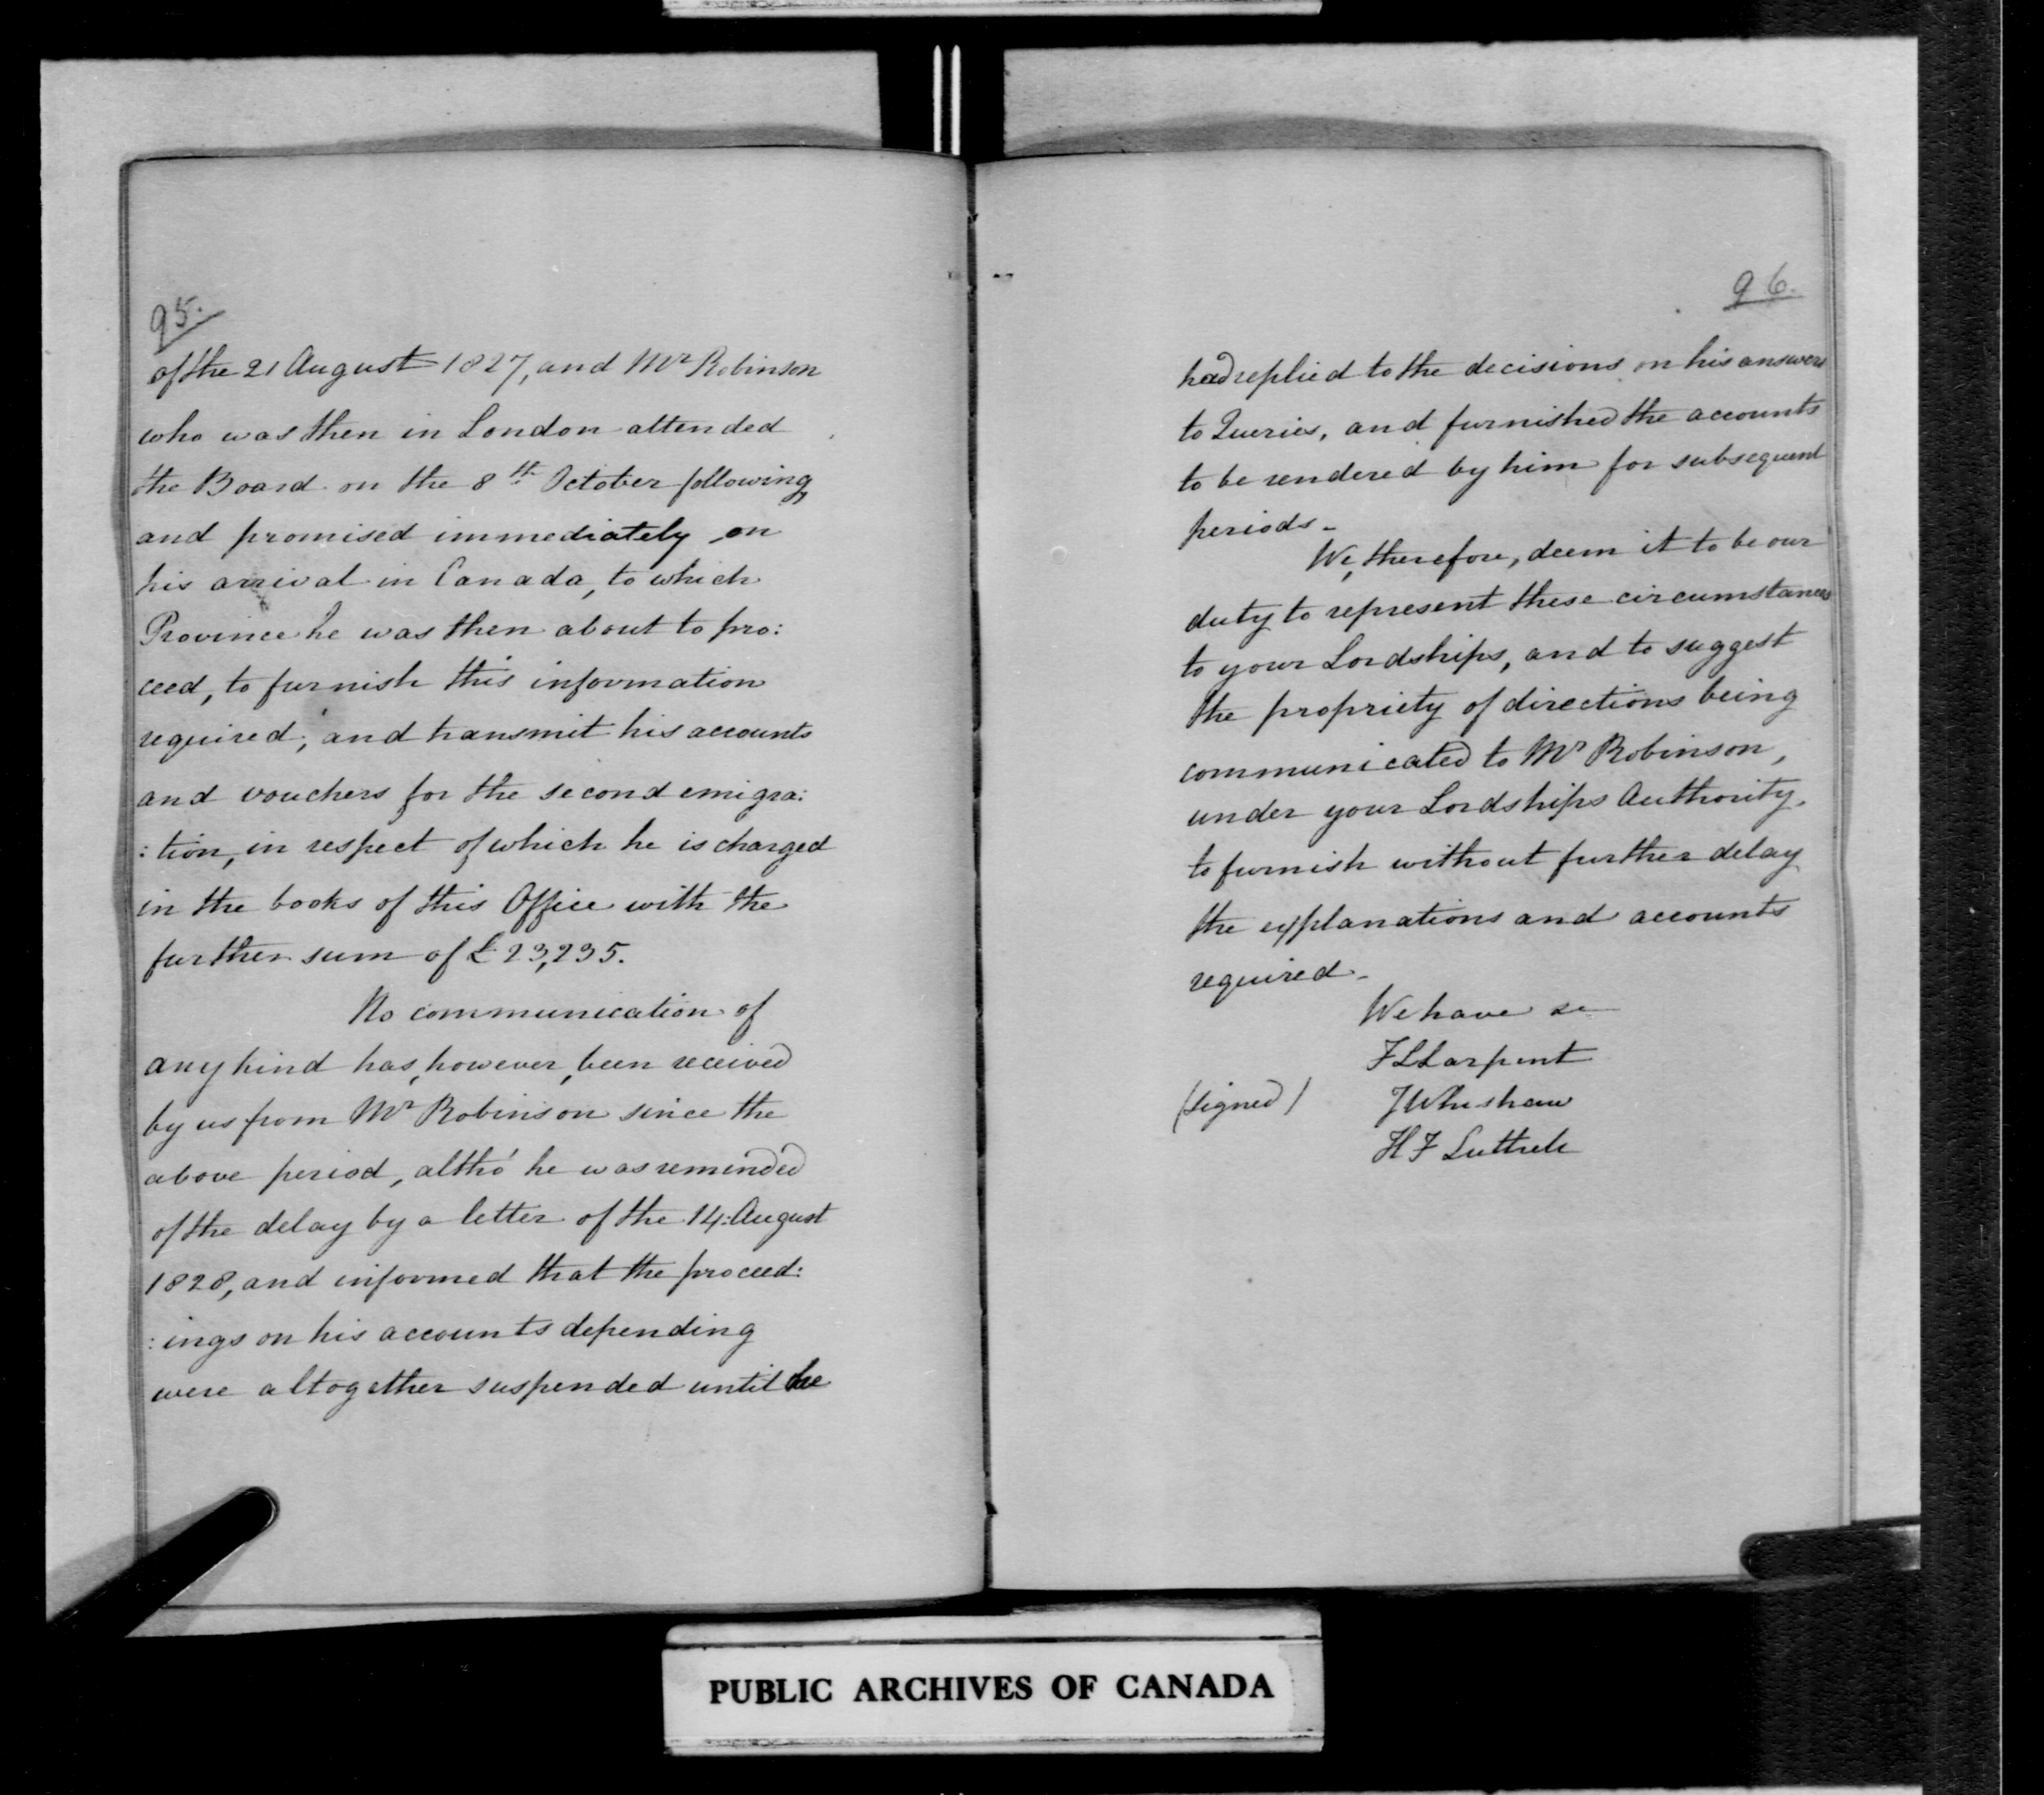 95.
of the 21 August 1827, and Mr Robinson
who was then in London attended
the Board on the 8th October following,
and promised immediately on
his arrival in Canada, to which
Province he was then about to pro:
ceed, to furnish this information
required; and transmit his accounts
and vouchers for the second emigra:
:tion, in respect of which he is charged
in the books of this Office with the
further sum of £23,235.
No communication of
any kind has, however, been received
by us from Mr Robinson since the
above period, altho' he was reminded
of the delay by a letter of the 14: August
1828, and informed that the proceed:
:ings on his accounts depending
were altogether suspended until he
96.
had replied to the decisions on his answers
to Queries, and furnished the accounts
to be rendered by him for subsequent
periods -
We, therefore, deem it to be our
duty to represent these circumstances
to your Lordships, and to suggest
the propriety of directions being
communicated to Mr Robinson,
under your Lordships Authority,
to furnish without further delay
the explanations and accounts
required -
We have &c
F S Larpent
(signed) J Whishaw
H F Luttrell
PUBLIC ARCHIVES OF CANADA